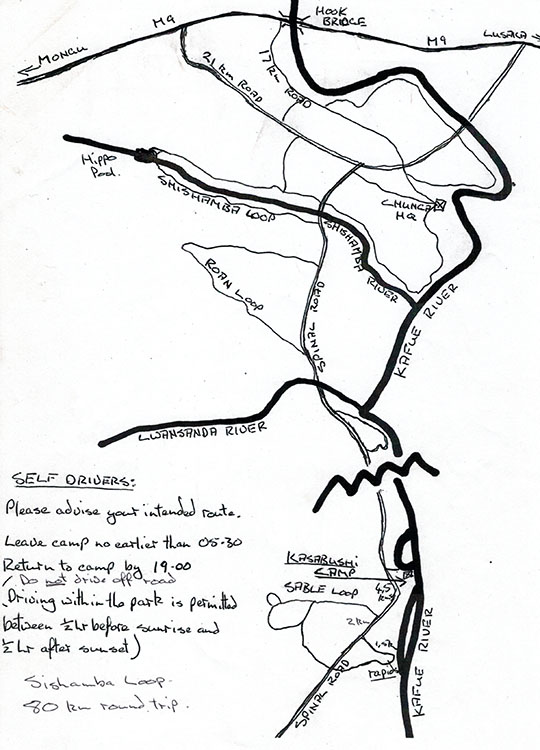 M9
HOOK
BRIDGE
MONGU
M9
LUSAKA
21 km ROAD
17 km ROAD
Hippo
Pool.
SHISHAMBA LOOP
CHUNGA
HQ
SHISHAMBA RIVER
ROAN LOOP
SPINAL ROAD
KAFUE RIVER
LWANSANDA RIVER
SELF DRIVERS:
Please advise your intended route.
Leave camp no earlier than 05-30
Return to camp by 19.00
(Do not drive off road
Driving within the park is permitted
between ½ hr before sunrise and
½ hr after sunset)
Sishamba Loop.
80 km round trip.
KASABUSHI
CAMP
SABLE LOOP
4,5
km
2km
1,5k
rapids
SPINAL ROAD
KAFUE RIVER